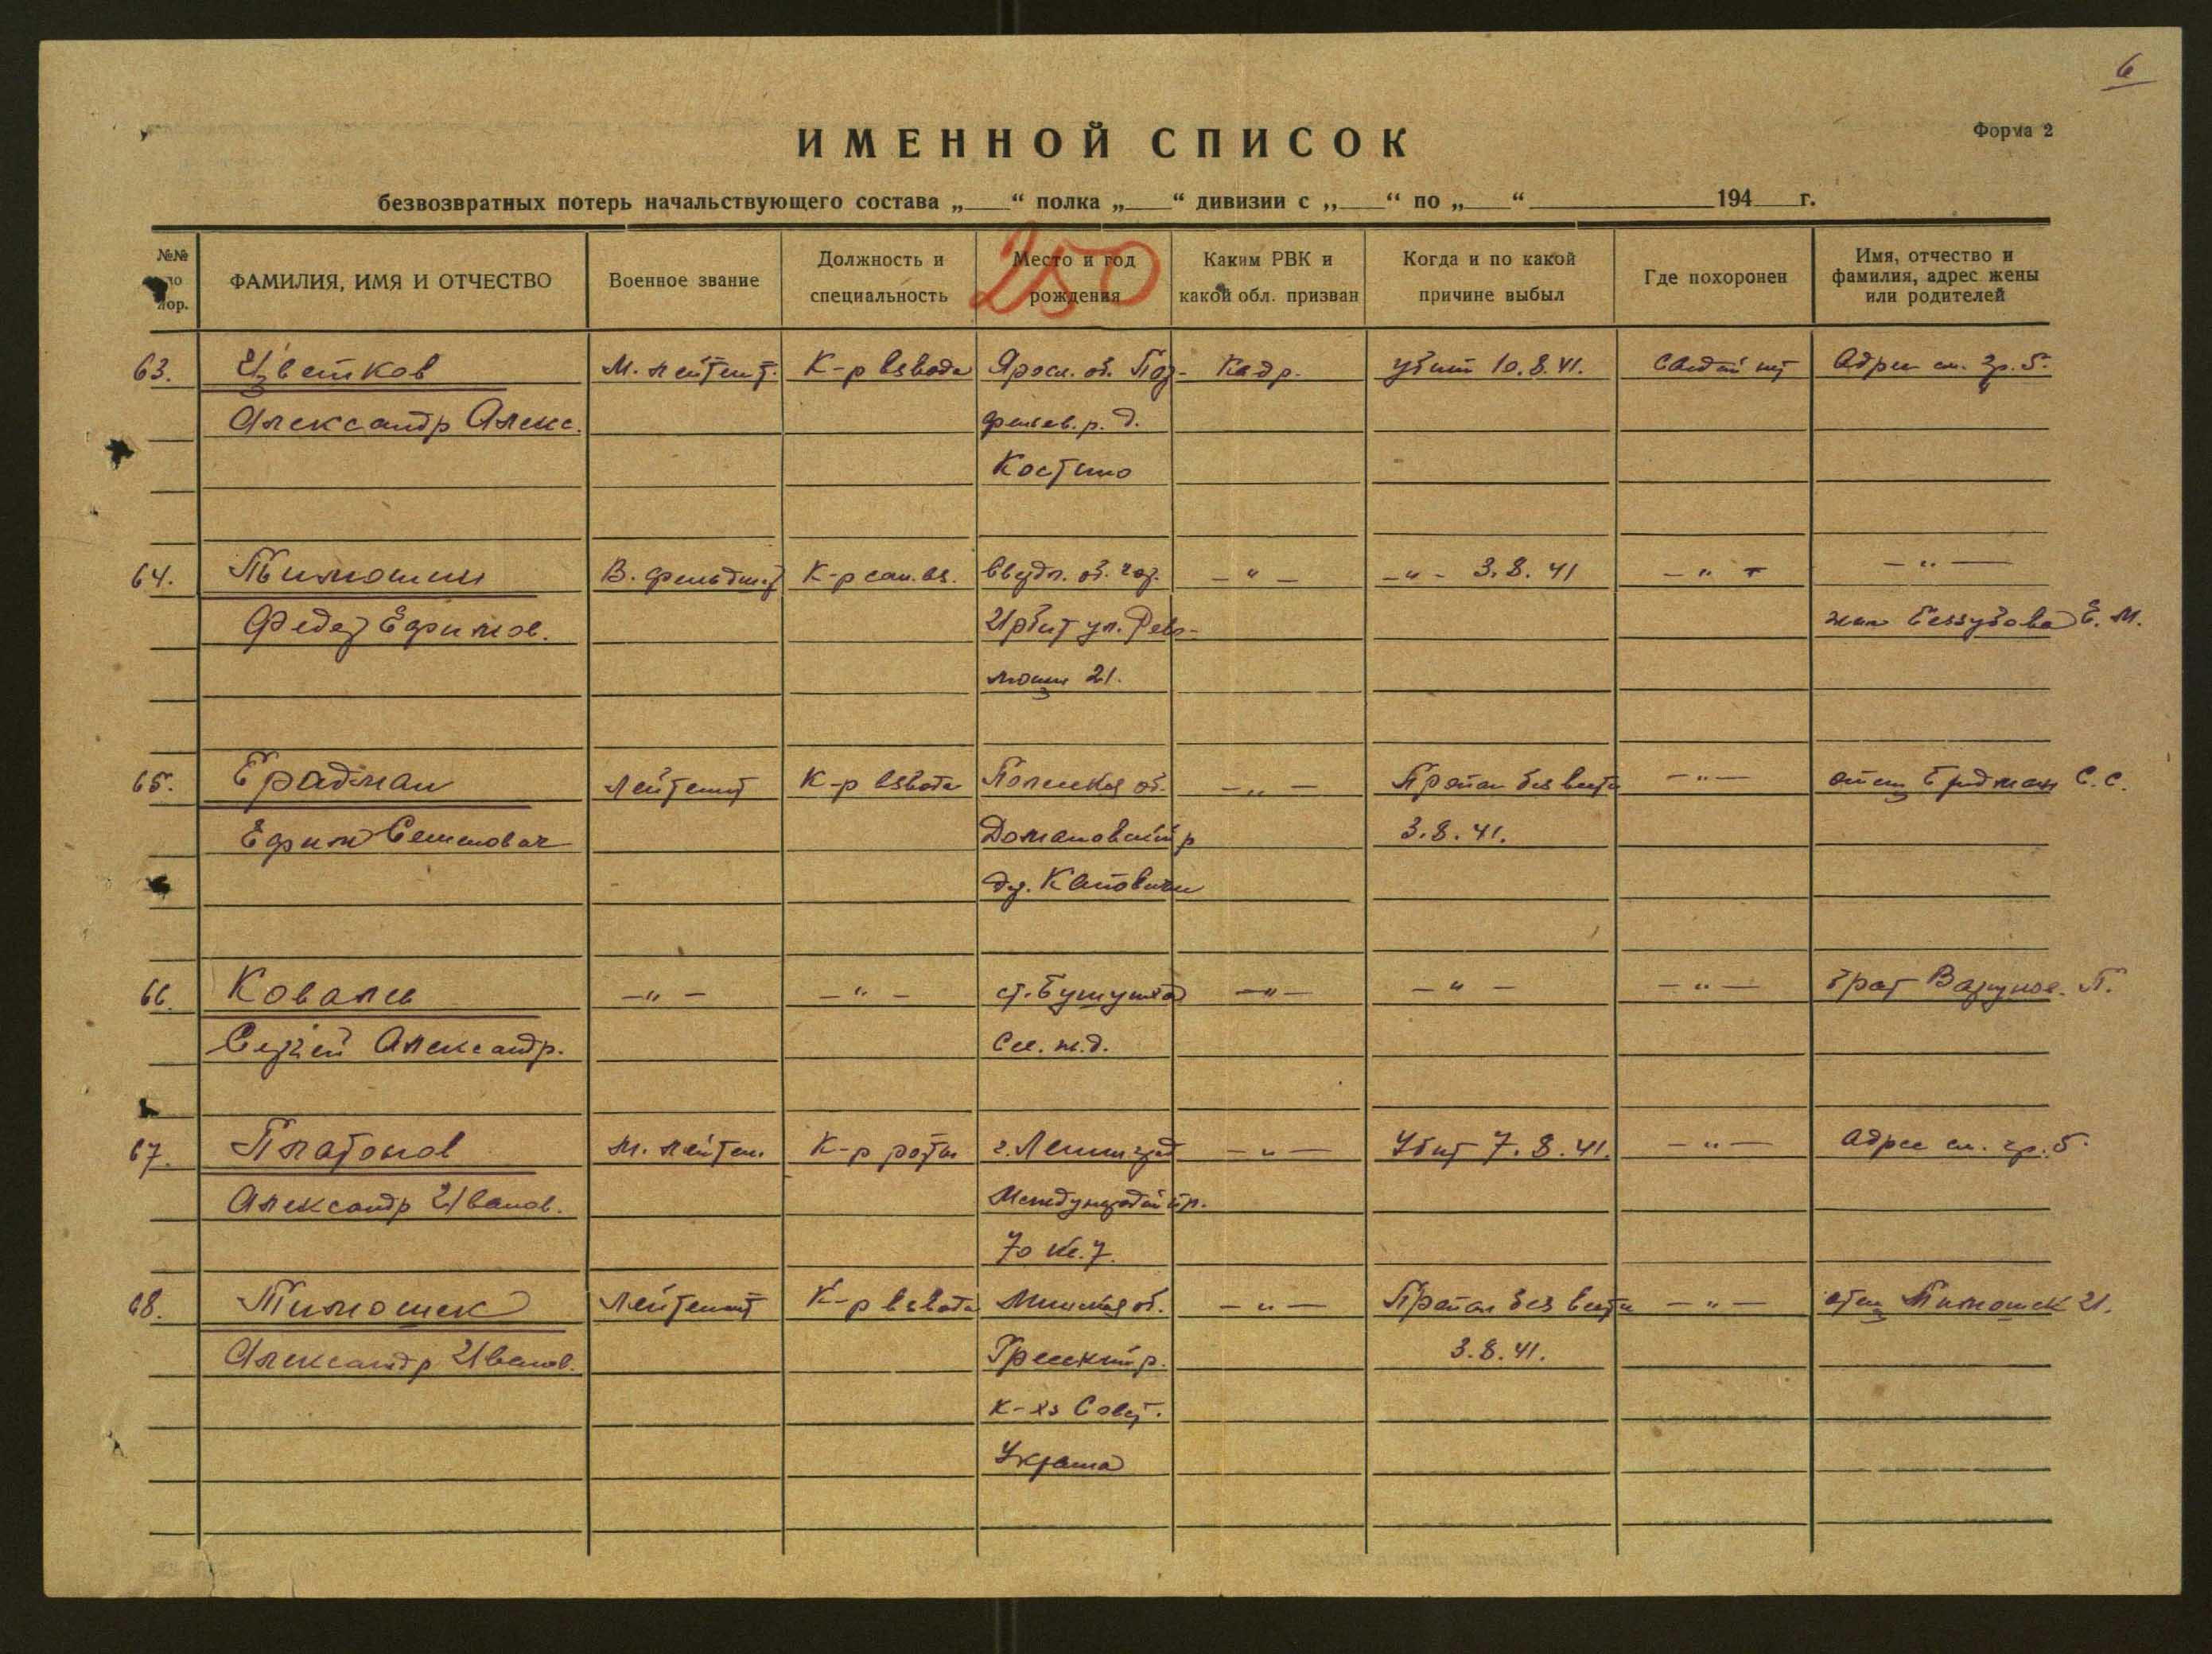 6
ИМЕННОЙ СПИСОК
Форма 2
безвозвратных потерь начальствующего состава „ “ полка „ “ дивизии с „ “ по „ “ 194 г.
250
№№ по пор. ФАМИЛИЯ, ИМЯ И ОТЧЕСТВО Военное звание Должность и специальность Место и год рождения Каким РВК и какой обл. призван Когда и по какой причине выбыл Где похоронен Имя, отчество и фамилия, адрес жены или родителей
63. Цветков М. лейтент. К-р взвода Яросл. об. Кадр. убит 10.8.41. Адрес см. гр. 5.
Александр Алекс. р. д.
Костино
64. Тимошин В. фельдш. К-р сан. вз. об. гор. — " — — " — 3.8.41 — " — — " —
Федор Ефимов. Ирбит ул. Рево- Е. М.
люции 21.
65. Ерадман лейтенант К-р взвода об. — " — Пропал без вести — " — отец С. С.
Ефим Семенович Домановский р 3.8.41.
66. Ковалев — " — — " — ст. — " — — " — — " — брат П.
Сергей Александр. ж.д.
67. Платонов М. лейтен. К-р роты г. Ленинград — " — Убит 7.8.41. — " — Адрес см. гр. 5.
Александр Иванов. пр.
70 кв. 7.
68. Тимошек Лейтенант К-р взвода Минская об. — " — Пропал без вести — " — отец Тимошек И.
Александр Иванов. Гресский р. 3.8.41.
к-хз Совет.
Украина